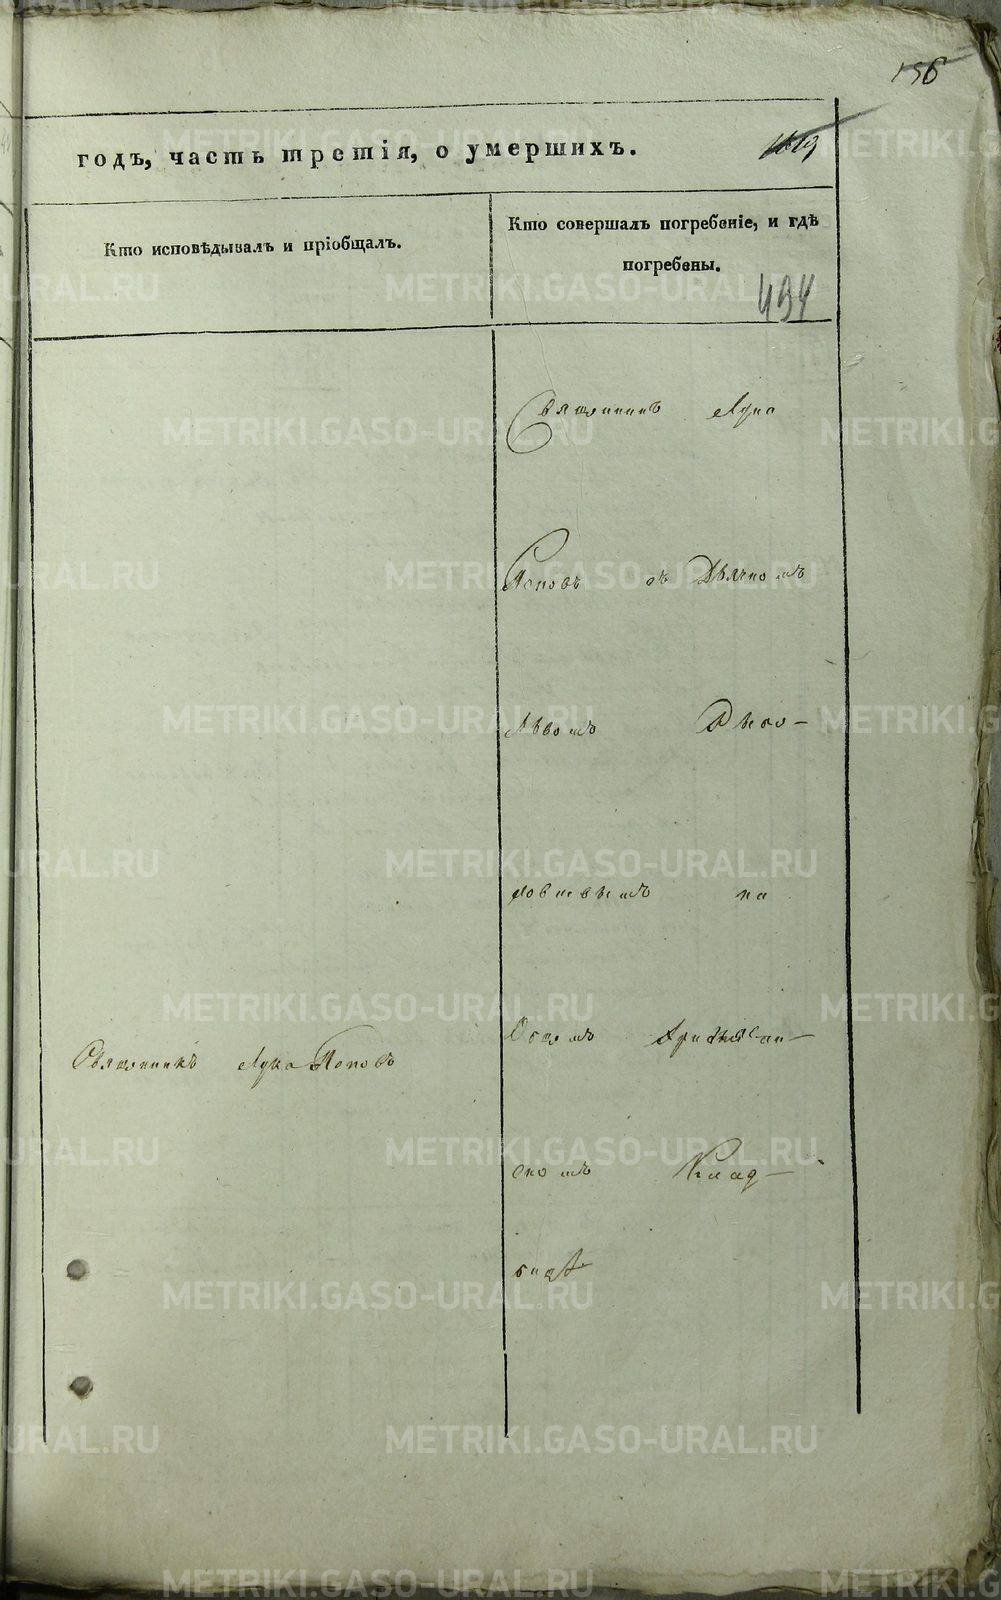 156
годъ, часть третія, о умершихъ.
Кто исповѣдывалъ и пріобщалъ.
Кто совершалъ погребеніе, и гдѣ
погребены.
494
Священникъ Лука
Поповъ съ Дьячкомъ
Львомъ
на
Общемъ Христіан-
Священникъ Лука Поповъ
скомъ Клад-
бищѣ
METRIKI.GASO-URAL.RU